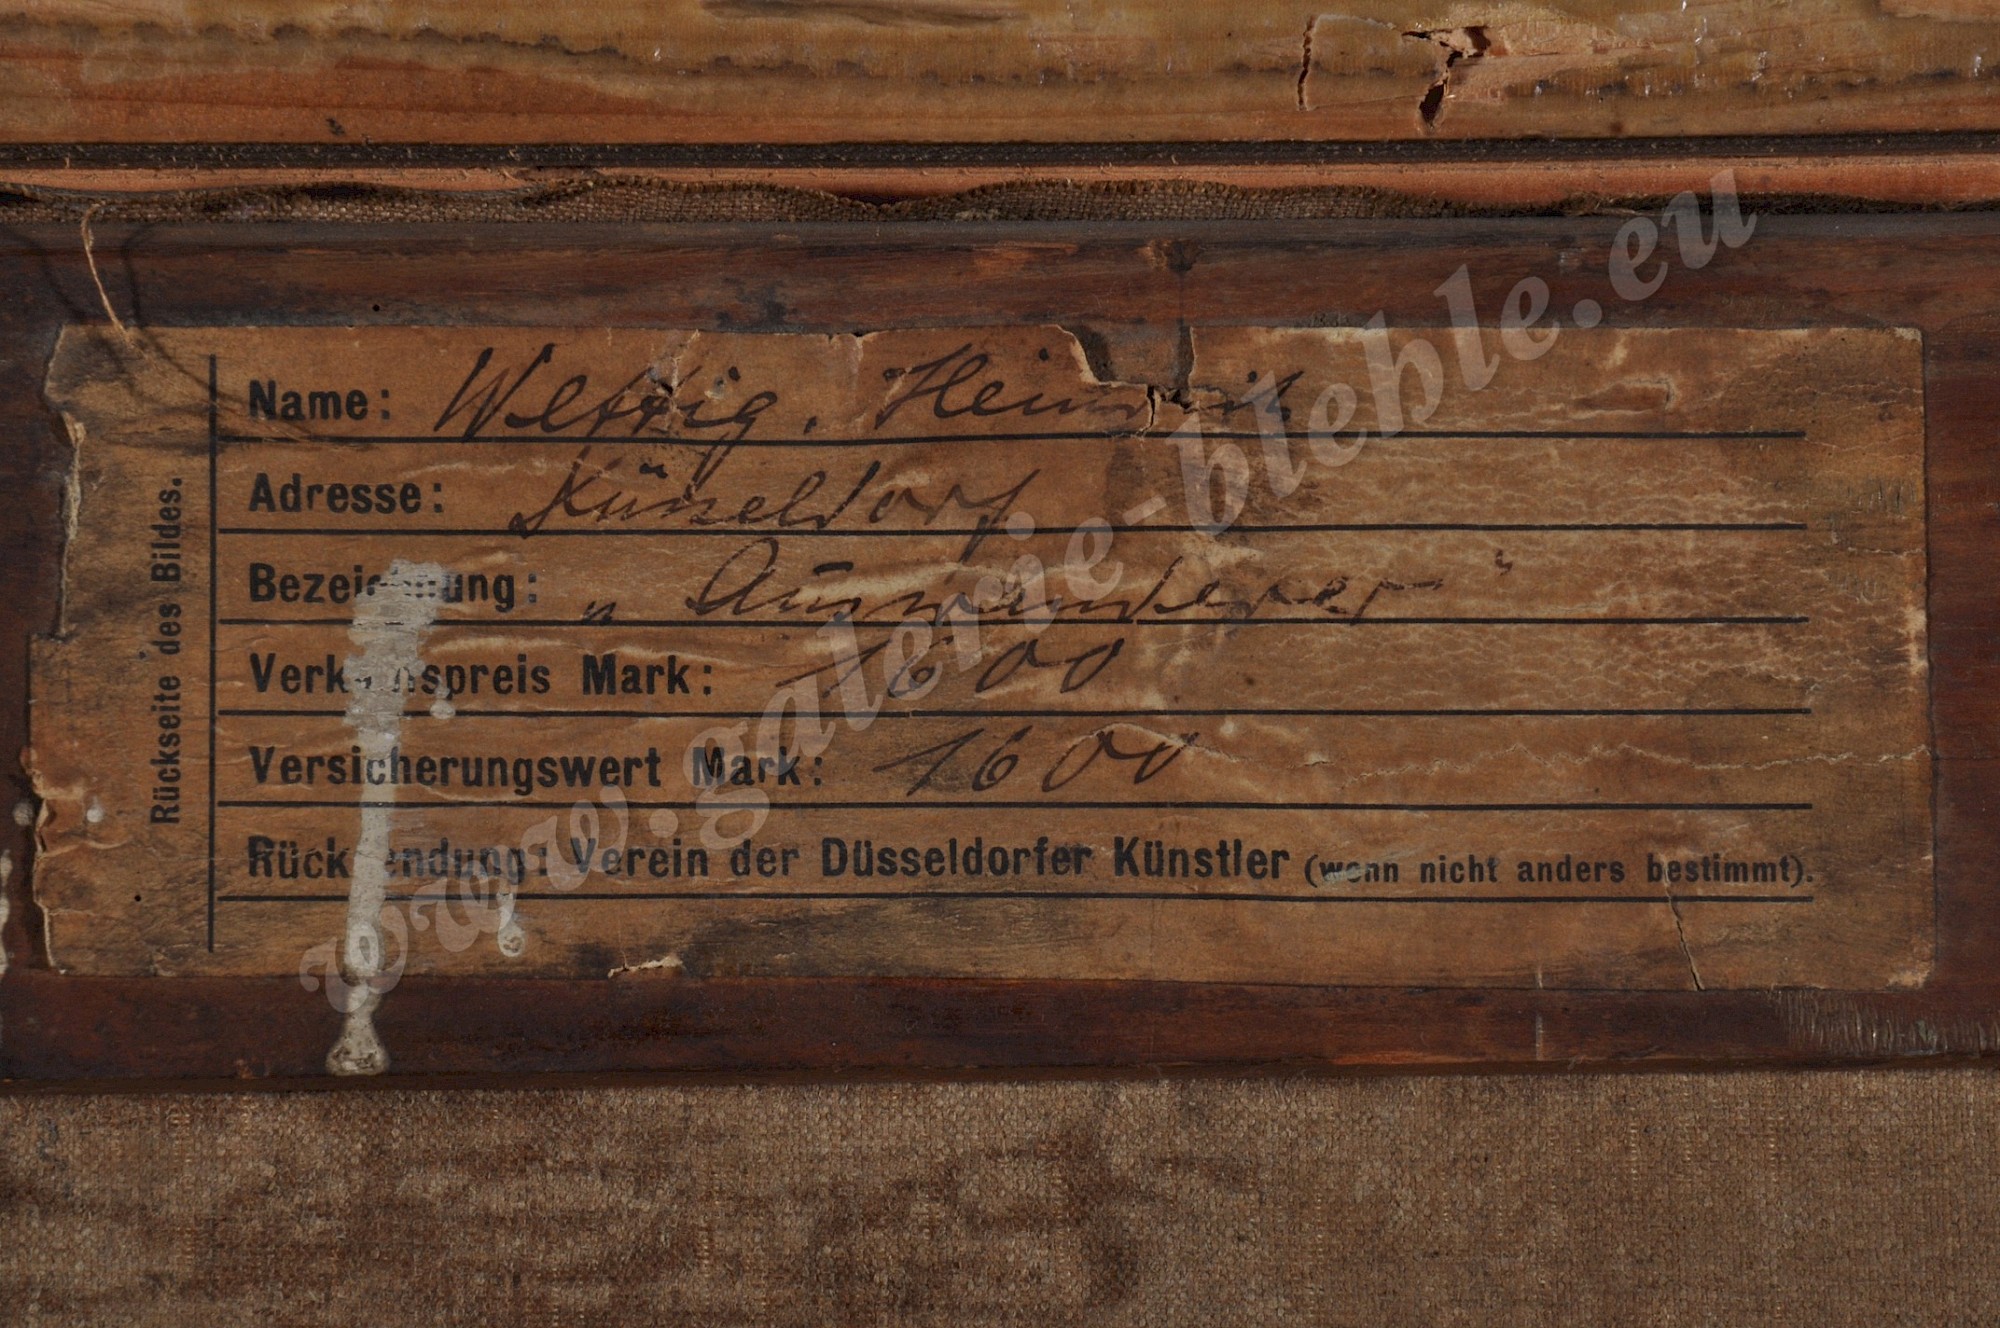 Rückseite des Bildes.
Name: Wettig, Heinrich
Adresse: Düsseldorf
Bezeichnung: „Auswanderer"
Verkaufspreis Mark: 1600
Versicherungswert Mark: 1600
Rücksendung: Verein der Düsseldorfer Künstler (wenn nicht anders bestimmt).
www.galerie-bleble.eu